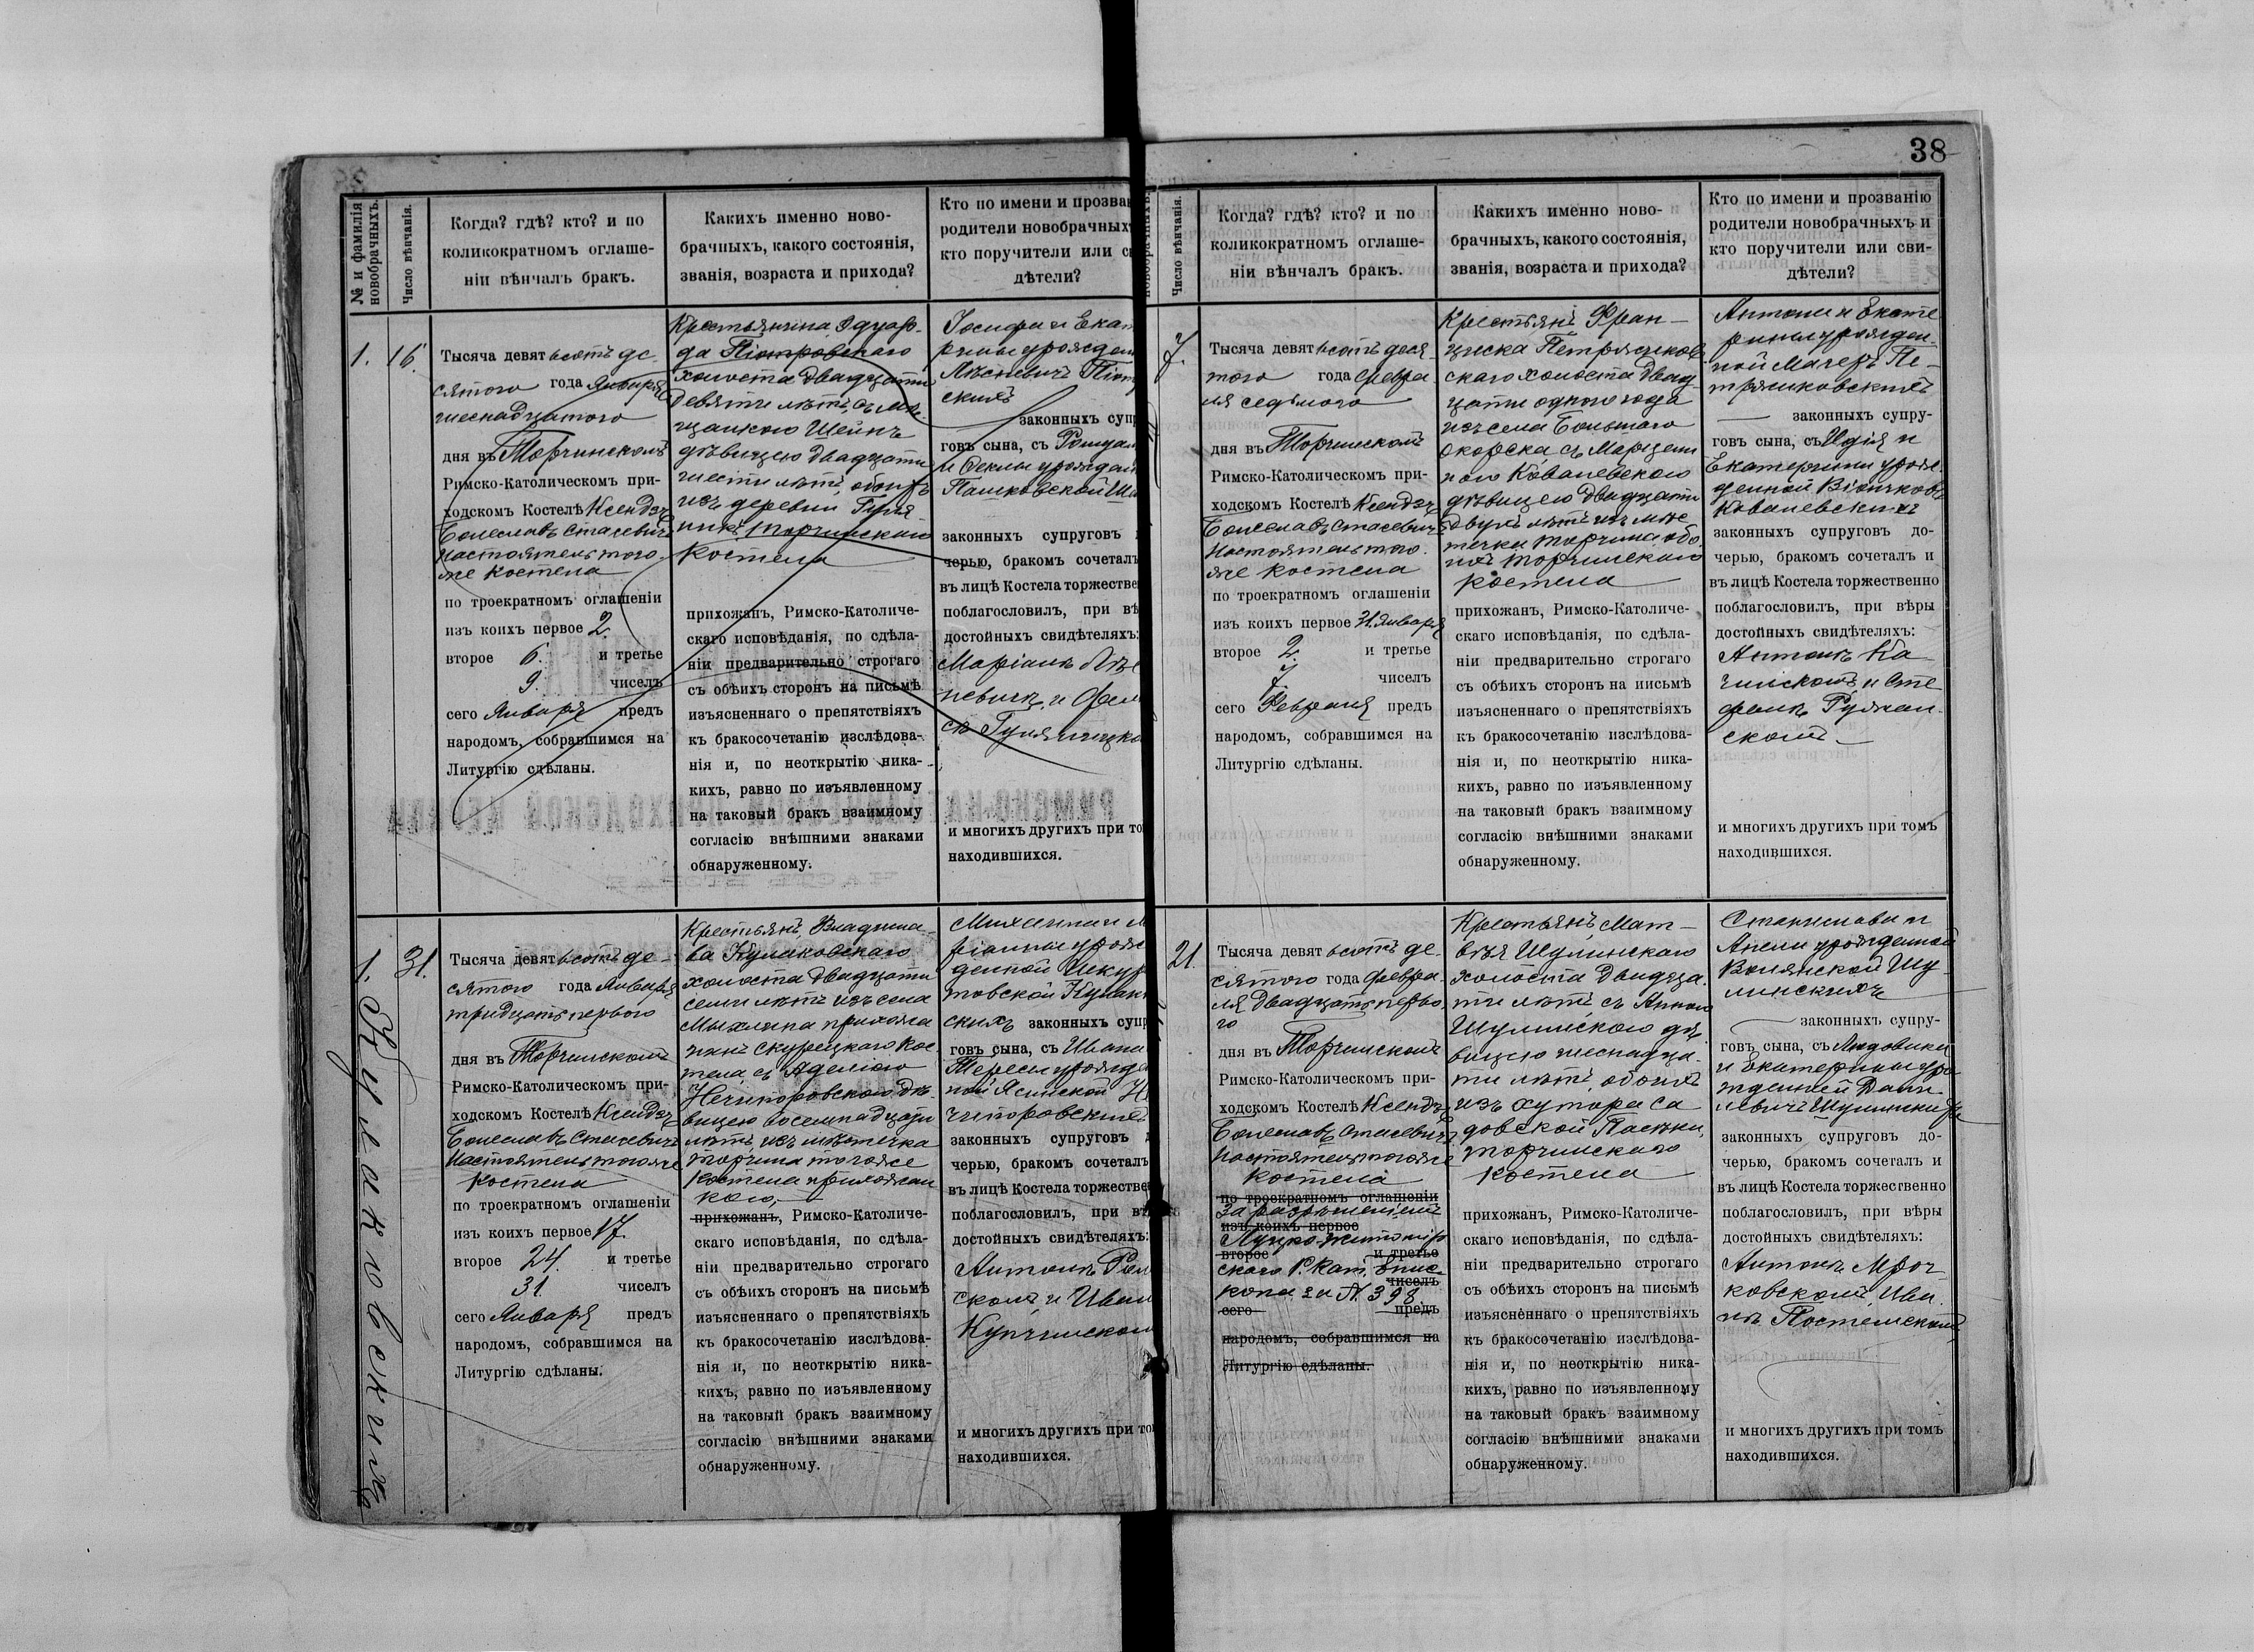 38
№ и фамилія
новобрачныхъ.
Число вѣнчанія.
Когда? гдѣ? кто? и по
коликократномъ оглаше-
ніи вѣнчалъ бракъ.
Какихъ именно ново-
брачныхъ, какого состоянія,
званія, возраста и прихода?
Кто по имени и прозва
родители новобрачных
кто поручители или с
дѣтели?
1.
16.
Тысяча девятьсотъ де
сятого года Января
шеснадцатого
дня въ Торчинскомъ
Римско-Католическомъ при-
ходскомъ Костелѣ Ксендзъ
Болеславъ Стасевичъ
настоятель того-
же костела
по троекратномъ оглашеніи
изъ коихъ первое 2.
второе 6. и третье
9. чиселъ
сего Января предъ
народомъ, собравшимся на
Литургію сдѣланы.
Крестьянина Эдуар-
да Піотровскаго
холоста двадцати
девяти лѣтъ, съ мѣ
щанкою Шейнъ
дѣвицею двадцати
шести лѣтъ, обоихъ
изъ деревни
Торчинскаго
костела
прихожанъ, Римско-Католиче-
скаго исповѣданія, по сдѣла-
ніи предварительно строгаго
съ обѣихъ сторонъ на письмѣ
изъясненнаго о препятствіяхъ
къ бракосочетанію изслѣдова-
нія и, по неоткрытію ника-
кихъ, равно по изъявленному
на таковый бракъ взаимному
согласію внѣшними знаками
обнаруженному.
Іосифа и Екат
рины урожден
Лѣсневичъ Піот
скихъ
законныхъ суп
говъ сына, съ
и Феклы урожден
Пашковской
законныхъ супруговъ
черью, бракомъ сочеталъ
въ лицѣ Костела торжестве
поблагословилъ, при вѣ
достойныхъ свидѣтеляхъ:
Маріанъ Лѣс
невичъ, и
и многихъ другихъ при то
находившихся.
1. Кулаковскихъ
31.
Тысяча девятьсотъ де-
сятого года Января
тридцать первого
дня въ Торчинскомъ
Римско-Католическомъ при-
ходскомъ Костелѣ Ксендзъ
Болеславъ Стасевичъ
настоятель того же
костела
по троекратномъ оглашеніи
изъ коихъ первое 17.
второе 24. и третье
31. чиселъ
сего Января предъ
народомъ, собравшимся на
Литургію сдѣланы.
Крестьянъ, Владисла-
ва Кулаковскаго
холоста двадцати
семи лѣтъ изъ села
Михлина прихожа
нинъ Скурецкаго кос
тела, съ Аделіею
Нечипоровской дѣ-
вицею восемнадцати
лѣтъ, изъ мѣстечка
Торчина того же
костела прихожан
кою,
прихожанъ, Римско-Католиче-
скаго исповѣданія, по сдѣла-
ніи предварительно строгаго
съ обѣихъ сторонъ на письмѣ
изъясненнаго о препятствіяхъ
къ бракосочетанію изслѣдова-
нія и, по неоткрытію ника-
кихъ, равно по изъявленному
на таковый бракъ взаимному
согласію внѣшними знаками
обнаруженному.
Михаила и М
ріанны урож
денной
Кулаков
скихъ законныхъ суп
говъ сына, съ Ивана
Тересы урожде
ной Ясинской
чипоровскихъ
законныхъ супруговъ
черью, бракомъ сочеталъ
въ лицѣ Костела торжестве
поблагословилъ, при вѣ
достойныхъ свидѣтеляхъ:
Антонъ
скомъ, и Иван
Купчинском
и многихъ другихъ при то
находившихся.
новобрачныхъ.
Число вѣнчанія.
Когда? гдѣ? кто? и по
коликократномъ оглаше-
ніи вѣнчалъ бракъ.
Какихъ именно ново-
брачныхъ, какого состоянія,
званія, возраста и прихода?
Кто по имени и прозванію
родители новобрачныхъ и
кто поручители или сви-
дѣтели?
7.
Тысяча девятьсотъ деся-
того года Февра
ля седьмого
дня въ Торчинскомъ
Римско-Католическомъ при-
ходскомъ Костелѣ Ксендзъ
Болеславъ Стасевичъ
настоятель того-
же костела
по троекратномъ оглашеніи
изъ коихъ первое 31. Января
второе 2. и третье
7. чиселъ
сего Февраля предъ
народомъ, собравшимся на
Литургію сдѣланы.
Крестьянъ Фран-
циска Петрашков
скаго холоста двад
цати одного года
изъ села Большаго
Окорска, съ Марцели
ною Ковалевскою
дѣвицею двадцати
двухъ лѣтъ изъ мѣс
течка Торчина обо
ихъ Торчинскаго
костела
прихожанъ, Римско-Католиче-
скаго исповѣданія, по сдѣла-
ніи предварительно строгаго
съ обѣихъ сторонъ на письмѣ
изъясненнаго о препятствіяхъ
къ бракосочетанію изслѣдова-
нія и, по неоткрытію ника-
кихъ, равно по изъявленному
на таковый бракъ взаимному
согласію внѣшними знаками
обнаруженному.
Антона и Екате
рины урожден-
ной Мачеръ Пе-
трашковскихъ
законныхъ супру-
говъ сына, съ и
Екатерины урож-
денной
Ковалевскихъ
законныхъ супруговъ до-
черью, бракомъ сочеталъ и
въ лицѣ Костела торжественно
поблагословилъ, при вѣры
достойныхъ свидѣтеляхъ:
Антонъ Ка-
чинскомъ, и Сте
фанъ
скомъ
и многихъ другихъ при томъ
находившихся.
21.
Тысяча девятьсотъ де-
сятого года Февра-
ля двадцать перво
го
дня въ Торчинскомъ
Римско-Католическомъ при-
ходскомъ Костелѣ Ксендзъ
Болеславъ Стасевичъ
настоятель того же
костела
по троекратномъ оглашеніи
за разрѣшеніемъ
изъ коихъ первое
Луцко-Житомір
второе и третье
скаго Р. Кат. Епис-
чиселъ
копа за N. 398.
сего предъ
народомъ, собравшимся на
Литургію сдѣланы.
Крестьянъ, Мат-
вѣя Шулинскаго
холоста двадца-
ти лѣтъ, съ Анною
Шулинскою дѣ
вицею шеснадца-
ти лѣтъ, обоихъ
изъ хутора Са
довской Пасѣки,
Торчинскаго
костела
прихожанъ, Римско-Католиче-
скаго исповѣданія, по сдѣла-
ніи предварительно строгаго
съ обѣихъ сторонъ на письмѣ
изъясненнаго о препятствіяхъ
къ бракосочетанію изслѣдова-
нія и, по неоткрытію ника-
кихъ, равно по изъявленному
на таковый бракъ взаимному
согласію внѣшними знаками
обнаруженному.
Станислава и
Анели урожденной
Волянской Шу-
линскихъ
законныхъ супру-
говъ сына, съ Людовика
и Екатерины уро
жденной Дани
левичъ Шулинскихъ
законныхъ супруговъ до-
черью, бракомъ сочеталъ и
въ лицѣ Костела торжественно
поблагословилъ, при вѣры
достойныхъ свидѣтеляхъ:
Антонъ Мроч-
ковскомъ, Ива-
нъ Постемскомъ
и многихъ другихъ при томъ
находившихся.